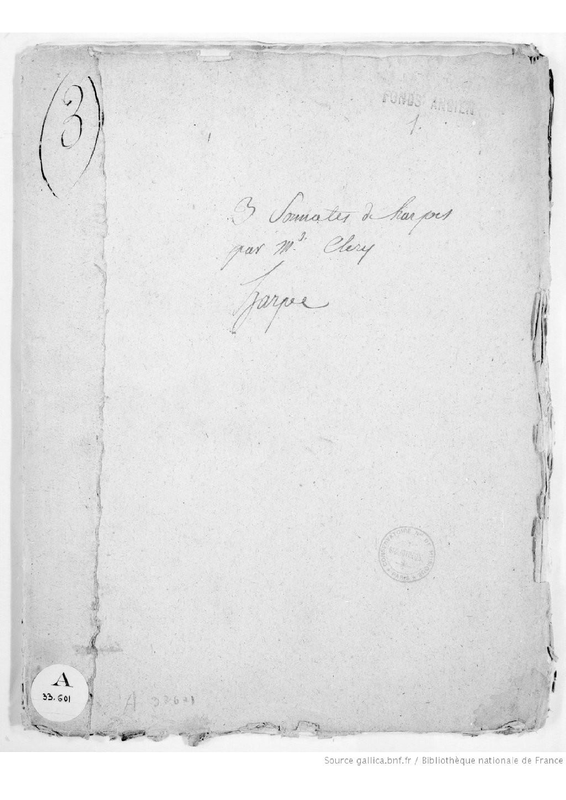 (3)
FONDS ANCIEN
1.
3 Sonates de harpes
par m.r Clery
harpe
A
33.601
A 33601
Source gallica.bnf.fr / Bibliothèque nationale de France